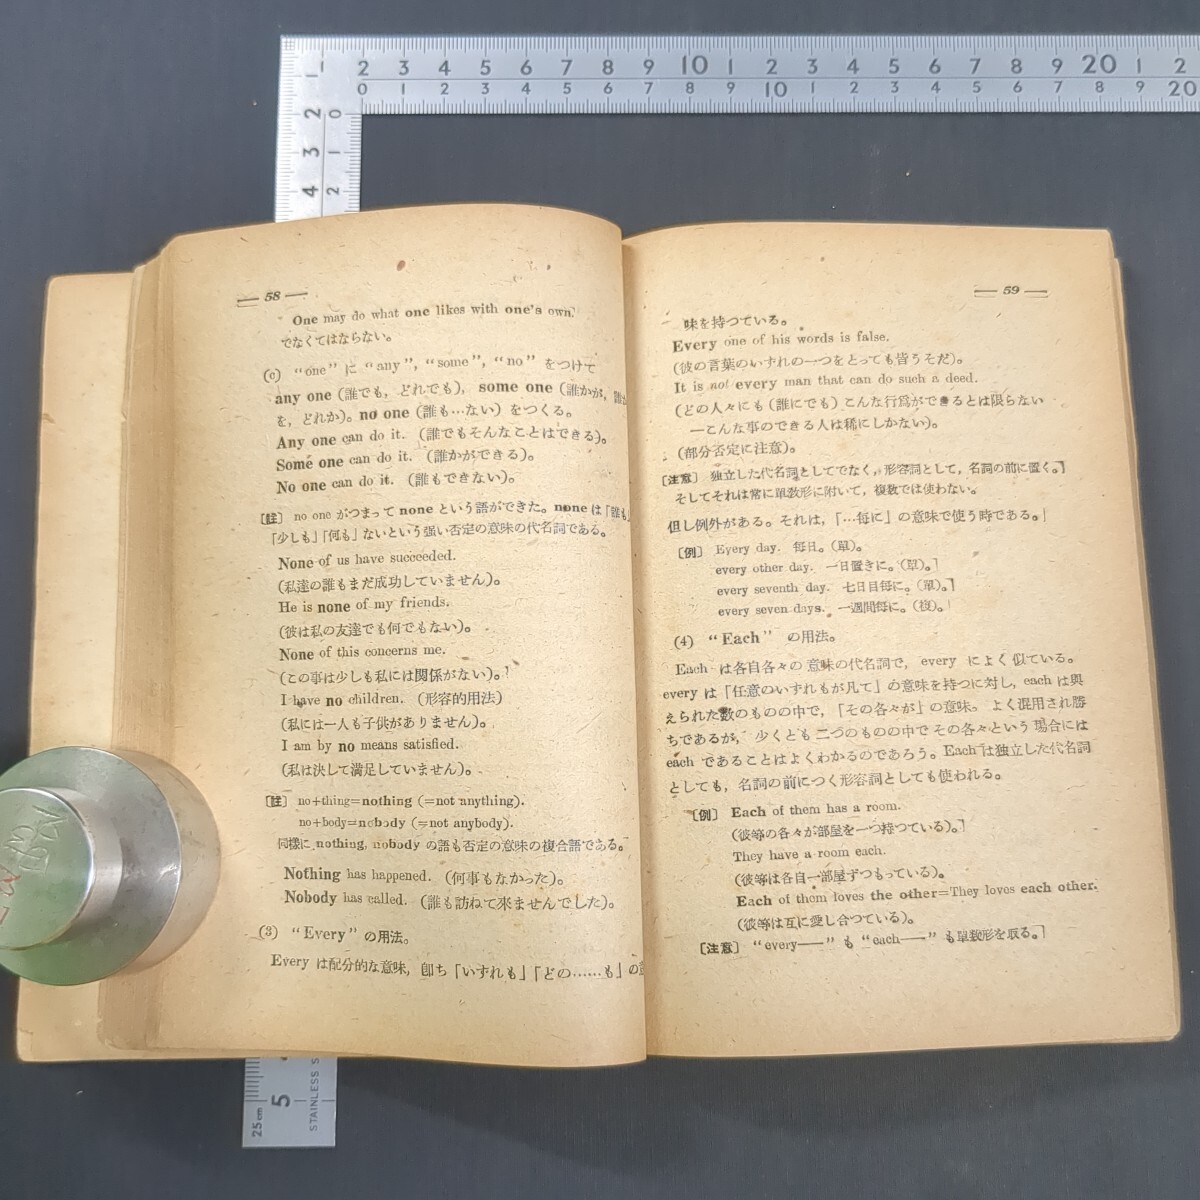 — 58 —
One may do what one likes with one's own.
でなくてはならない。
(c) “one” に “any”, “some”, “no” をつけて
any one (誰でも, どれでも), some one (誰かが,
を, どれか)。no one (誰も…ない) をつくる。
Any one can do it. (誰でもそんなことはできる)。
Some one can do it. (誰かができる)。
No one can do it. (誰もできない)。
〔註〕 no one がつまって none という語ができた。none は「誰も」
「少しも」「何も」ないという强い否定の意味の代名詞である。
None of us have succeeded.
(私達の誰もまだ成功していません)。
He is none of my friends.
(彼は私の友達でも何でもない)。
None of this concerns me.
(この事は少しも私には関係がない)。
I have no children. (形容的用法)
(私には一人も子供がありません)。
I am by no means satisfied.
(私は決して満足していません)。
〔註〕 no+thing=nothing (=not anything).
no+body=nobody (=not anybody).
同様に nothing, nobody の語も否定の意味の複合語である。
Nothing has happened. (何事もなかった)。
Nobody has called. (誰も訪ねて來ませんでした)。
(3) “Every” の用法。
Every は配分的な意味, 卽ち「いずれも」「どの……も」の
— 59 —
味を持つている。
Every one of his words is false.
(彼の言葉のいずれの一つをとっても皆うそだ)。
It is not every man that can do such a deed.
(どの人々にも (誰にでも) こんな行爲ができるとは限らない
—こんな事のできる人は稀にしかない)。
(部分否定に注意)。
〔注意〕 独立した代名詞としてでなく, 形容詞として, 名詞の前に置く。
そしてそれは常に單数形に附いて, 複数では使わない。
但し例外がある。それは, 「…每に」の意味で使う時である。
〔例〕 Every day. 每日。(單)。
every other day. 一日置きに。(單)。
every seventh day. 七日目每に。(單)。
every seven days. 一週間每に。(複)。
(4) “Each” の用法。
Each は各自各々の意味の代名詞で, every によく似ている。
every は「任意のいずれもが凡て」の意味を持つに対し, each は與
えられた数のものの中で, 「その各々が」の意味。よく混用され勝
ちであるが, 少くとも二つのものの中でその各々という場合には
each であることはよくわかるのであろう。Each は独立した代名詞
としても, 名詞の前につく形容詞としても使われる。
〔例〕 Each of them has a room.
(彼等の各々が部屋を一つ持つている)。
They have a room each.
(彼等は各自一部屋ずつもっている)。
Each of them loves the other=They loves each other.
(彼等は互に愛し合つている)。
〔注意〕 “every——” も “each——” も單数形を取る。
1 2 3 4 5 6 7 8 9 10 1 2 3 4 5 6 7 8 9 20 1 2
0 1 2 3 4 5 6 7 8 9 10 1 2 3 4 5 6 7 8 9 20
1 2 3 4
0 1 2
5
25cm
STAINLESS